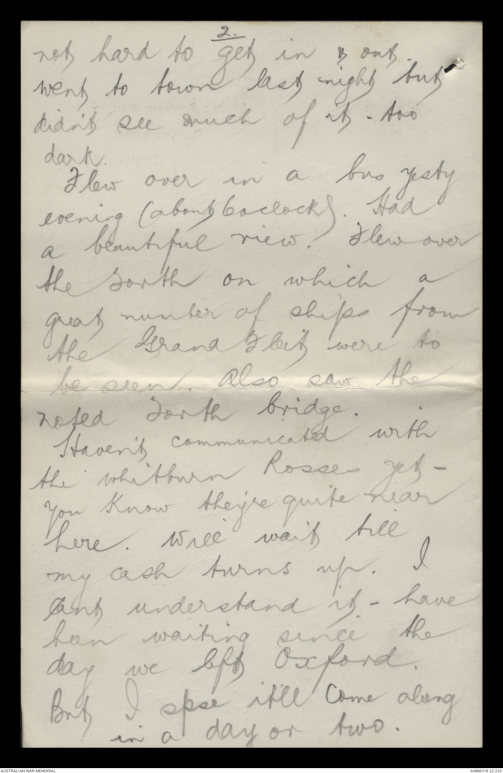 2.
not hard to get in & out.
Went to town last night but
didn't see much of it - too
dark.
Flew over in a bus yesty
evening (about 6 oclock). Had
a beautiful view. Flew over
the Forth on which a
great number of ships from
the Grand Fleet were to
be seen. Also saw the
noted Forth bridge.
Haven't communicated with
the Whitburn Rosses yet -
you know they're quite near
here. Will wait till
my cash turns up. I
cant understand it - have
been waiting since the
day we left Oxford.
But I spse it'll come along
in a day or two.
AUSTRALIAN WAR MEMORIAL